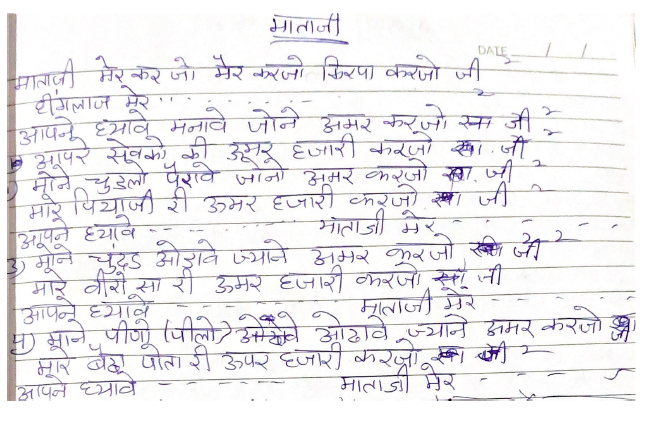 माताजी
DATE / /
माताजी मेर कर जो मैर करजो किरपा करजो जी २
हींगलाज मेर '' - - - - - २
आपने ध्यावे मनावे जोने अमर करजो सा जी २
आपरे सेवको की उमर हजारी करजो सा. जी २
1) मूोने चुडलो पैरावे जानो अमर करजो सा. जी २
मारे पियाजी री ऊमर हजारी करजो सा जी २
आपने ध्यावे - - - - - माताजी मेर - - - - -
3) मूोने चुंदड ओडावे ज्याने अमर करजो जी २
मारे वीरो सा री ऊमर हजारी करजो सा जी
आपने ध्यावे - - - - - माताजी मेर - - - -
4) मूोने पीणो (पीलो) ओढावे ज्याने अमर करजो सा जी
मार बेटे पोता री ऊपर हजारी करजो सा जी २
आपने ध्यावे - - - - - माताजी मेर - - - -